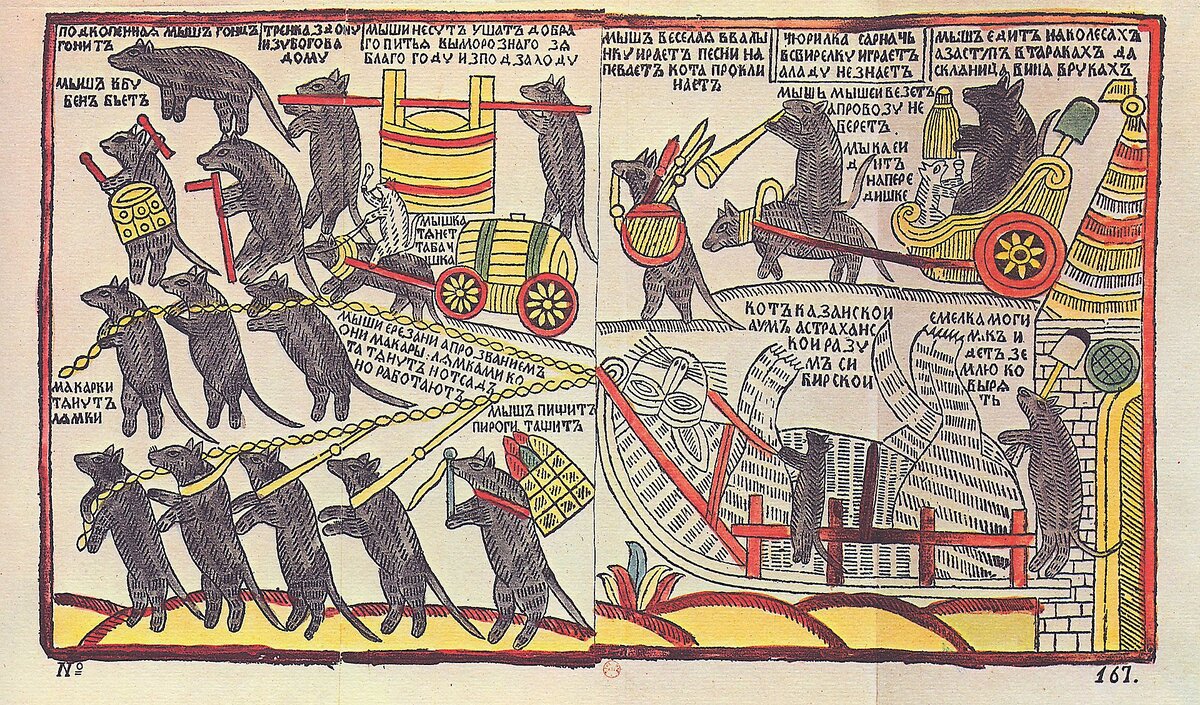 ПОДКОПЕННАЯ МЫШЪ ГОНЦЪ
ГОНИТЪ
ТРЕНКА З ДОНУ
ИЗУБОГОВА
ДОМУ
МЫШИ НЕСУТЪ УШАТЪ ДОБРА
ГО ПИТЬЯ ВЫМОРОЗНАГО ЗА
БЛАГО ГОДУ ИЗПОДЗАЛОДУ
МЫШЪ ВБУ
БЕНЪ БЬЕТЪ
МЫШКА
ТЯНЕТ
ТАБАЧ
ИШКА
МЫШИ ЕРЕЗАНИ АПРОЗВАНИЕМЪ
ОНИ МАКАРЫ. ЛЯМКАМИ КО
ТА ТАНУТЪ НОТСАДЪ
НО РАБОТАЮТЪ
МАКАРКИ
ТЯНУТЪ
ЛЯМКИ
МЫШЪ ПИЩИТЪ
ПИРОГИ ТАЩИТЪ
МЫШЪ ВЕСЕЛАЯ ВВАЛЫ
НКУ ИРАЕТЪ ПЕСНИ НА
ПЕВАЕТЪ КОТА ПРОКЛИ
НАЕТЪ
ЧЮРИЛКА САРНАЧЬ
ВСВИРЕЛКУ ИГРАЕТЪ
АЛАДУ НЕЗНАЕТЪ
МЫШЪ ЕДИТЪ НАКОЛЕСАХЪ
АЗАСТУПЪ ВТАРАКАХЪ ДА
СКЛАНИЦА ВИНА ВРУКАХЪ
МЫШЬ МЫШЕЙ ВЕЗЕТЪ
АПРОВОЗУ НЕ
БЕРЕТЪ.
МЫКА СИ
ДИТЪ
НАПЕРЕ
ДИШКЕ
КОТЪ КАЗАНСКОИ
АУМЪ АСТРАХАНС
КОИ РАЗУ
МЪ СИ
БИРСКОИ
ЕМЕЛКА МОГИ
ЛАКЪ И
ДЕТЪ ЗЕ
МЛЮ КО
ВЫРЯ
ТЬ
№
167.